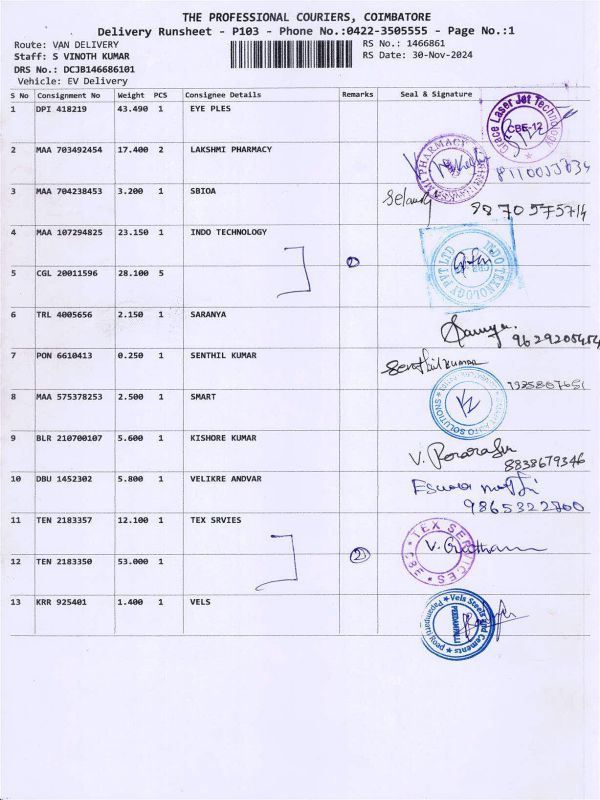 THE PROFESSIONAL COURIERS, COIMBATORE
Delivery Runsheet - P103 - Phone No.:0422-3505555 - Page No.:1
Route: VAN DELIVERY
RS No.: 1466861
Staff: S VINOTH KUMAR
RS Date: 30-Nov-2024
DRS No.: DCJB146686101
Vehicle: EV Delivery
S No Consignment No Weight PCS Consignee Details Remarks Seal & Signature
1 DPI 418219 43.490 1 EYE PLES
Grace Laser Jet Technology CBE-12
2 MAA 703492454 17.400 2 LAKSHMI PHARMACY
PHARMACY
3 MAA 704238453 3.200 1 SBIOA
9870575714
4 MAA 107294825 23.150 1 INDO TECHNOLOGY
2
INDO TEKNOLOGY PVT LTD CBE
5 CGL 20011596 28.100 5
6 TRL 4005656 2.150 1 SARANYA
9629205454
7 PON 6610413 0.250 1 SENTHIL KUMAR
Senthil kumar
8 MAA 575378253 2.500 1 SMART
AUTO SOLUTIONS
9 BLR 210700107 5.600 1 KISHORE KUMAR
8838679346
10 DBU 1452302 5.800 1 VELIKRE ANDVAR
9865322700
11 TEN 2183357 12.100 1 TEX SRVIES
TEX SERVICES
2
12 TEN 2183350 53.000 1
13 KRR 925401 1.400 1 VELS
Vels Steels and Cements